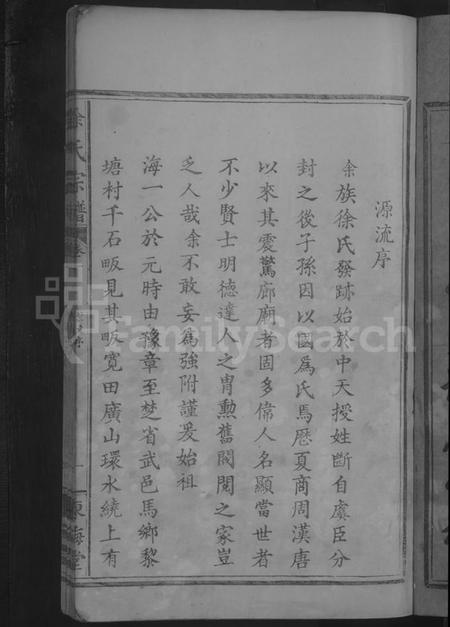 源流序
余族徐氏發跡始於中天授姓斷自虞臣分
封之後子孫因以國為氏焉歷夏商周漢唐
以來其震驚廊廟者固多偉人名顯當世者
不少賢士明德達人之胄勲舊閥閱之家豈
乏人哉余不敢妄為強附謹爰始祖
海一公於元時由豫章至楚省武邑馬鄉黎
塘村千石畈見其畈寬田廣山環水繞上有
徐氏宗譜
東海堂
FamilySearch